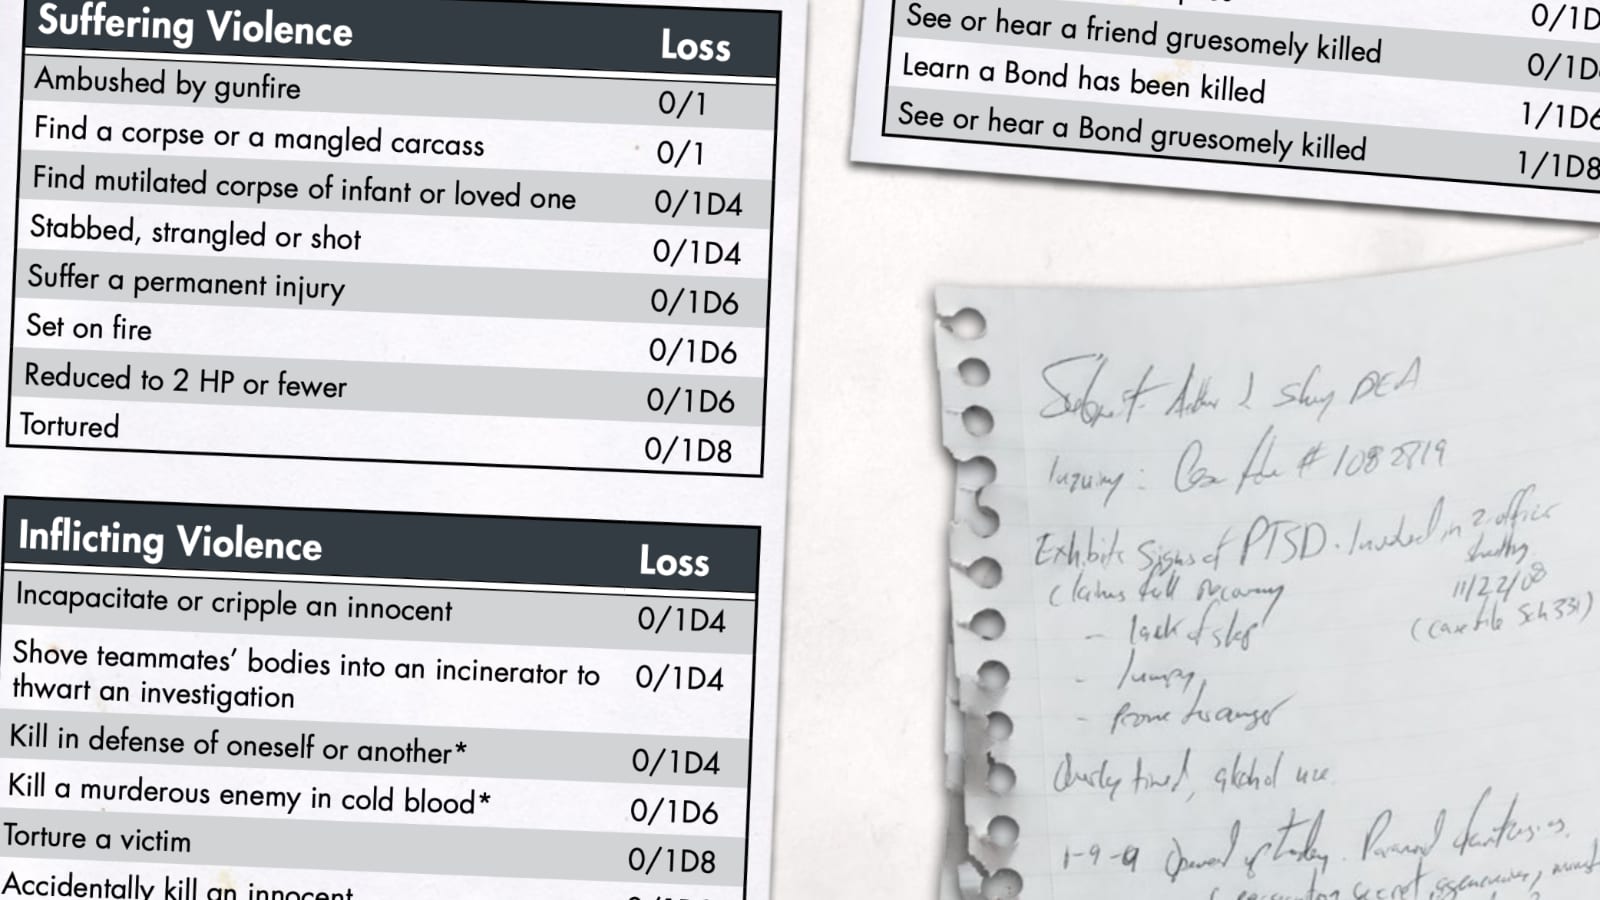 Suffering Violence Loss
Ambushed by gunfire 0/1
Find a corpse or a mangled carcass 0/1
Find mutilated corpse of infant or loved one 0/1D4
Stabbed, strangled or shot 0/1D4
Suffer a permanent injury 0/1D6
Set on fire 0/1D6
Reduced to 2 HP or fewer 0/1D6
Tortured 0/1D8
Inflicting Violence Loss
Incapacitate or cripple an innocent 0/1D4
Shove teammates’ bodies into an incinerator to 0/1D4
thwart an investigation
Kill in defense of oneself or another* 0/1D4
Kill a murderous enemy in cold blood* 0/1D6
Torture a victim 0/1D8
Accidentally kill an innocent
0/1D
See or hear a friend gruesomely killed 0/1D
Learn a Bond has been killed 1/1D6
See or hear a Bond gruesomely killed 1/1D8
Subject: DEA
Inquiry: Case file # 1082819
Exhibits signs of PTSD. Involved in 2 officer
shooting
claims full recovery 11/22/08
- lack of sleep (case file Sch331)
- jumpy
- prone to anger
Overly tired, alcohol use
1-9-9 Opened up today. Paranoid fantasies.
secret agencies,